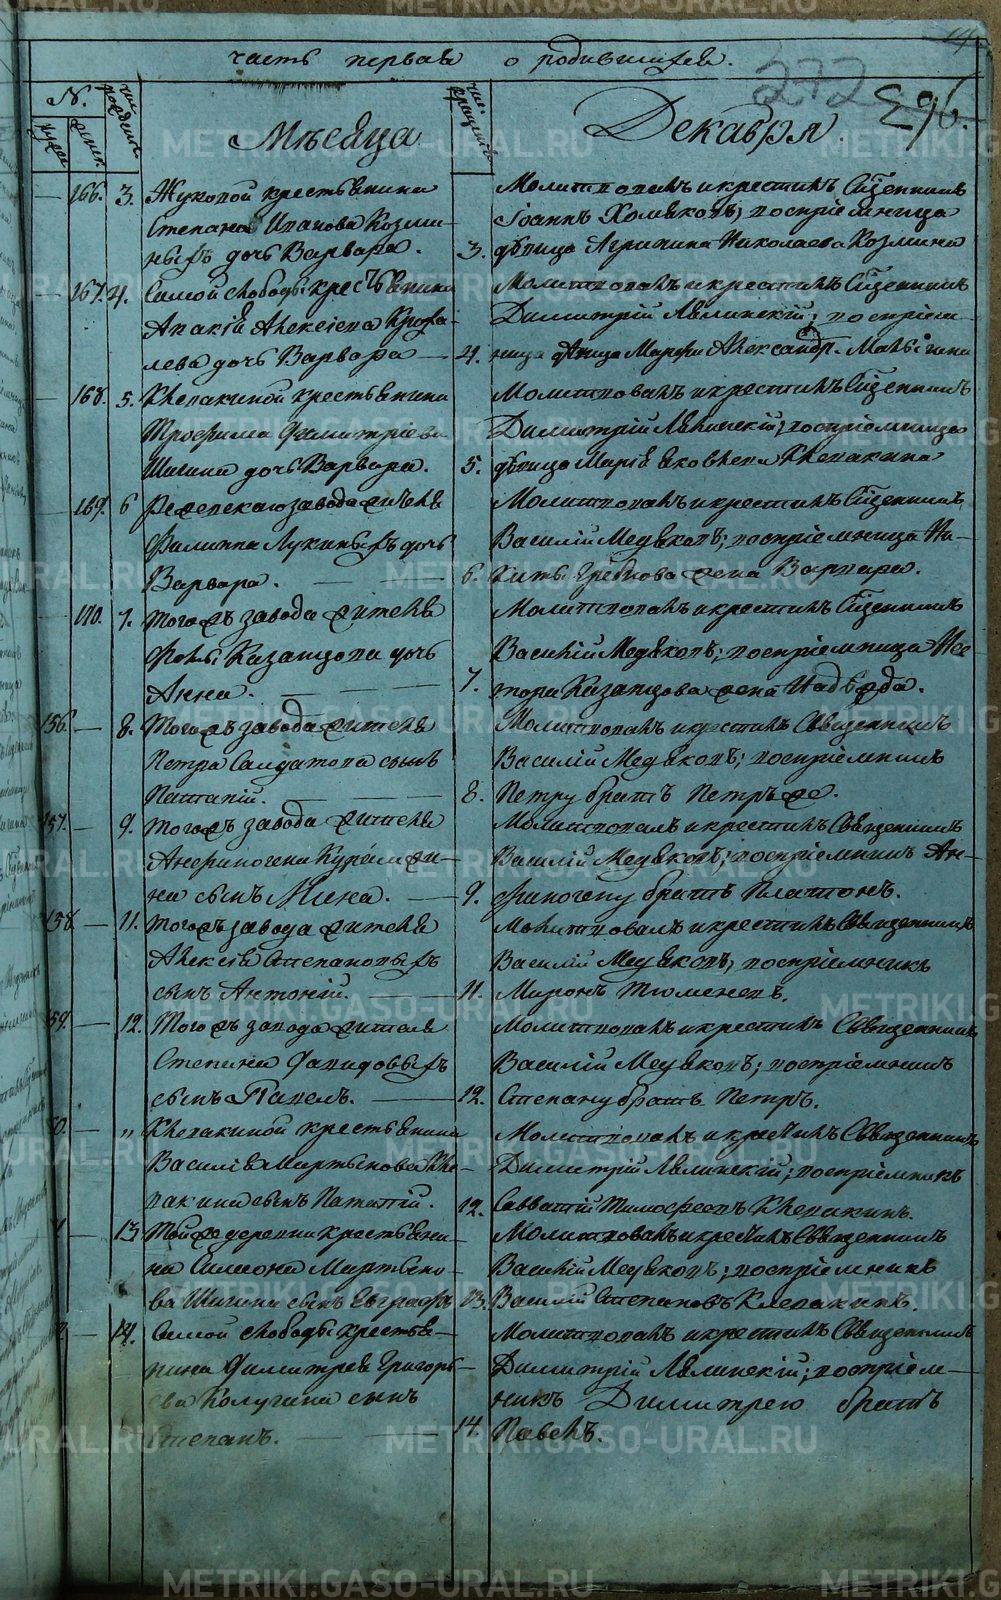 часть первая о родившихся.
272 296.
N. число рожденія число крещенія
мужск. женск.
Мѣсяца Декабря
166. 3. Жуковой крестьянина
Степана Иванова Козми-
ныхъ дочь Варвара.
Молитвовалъ и крестилъ Священникъ
Іоаннъ Холмковъ; воспріемница
3. дѣвица Агрипина Николаева Козмина
167. 4. Самой слободы крестьянина
Алексіева
лева дочь Варвара
Молитвовалъ и крестилъ Священникъ
Димитрій Левицкій; воспріем-
4. ница дѣвица Марѳа Александр.
168. 5. Клевакиной крестьянина
Трофима Димитріева
Шигина дочь Варвара.
Молитвовалъ и крестилъ Священникъ
Димитрій; воспріемница
5. дѣвица Марія Яковлева Клевакина
169. 6 Режевскаго завода жителя
Филиппа Лукиныхъ дочь
Варвара.
Молитвовалъ и крестилъ Священникъ
Василій Медяковъ; воспріемница Ни-
6. киты жена Варвара.
170. 7. Того жъ завода жителя
Фомы Казанцова дочь
Анна.
Молитвовалъ и крестилъ Священникъ
Василій Медяковъ; воспріемница Нес-
7. тора Казанцова жена Надѣжда.
156. 8. Того жъ завода жителя
Петра Салдатова сынъ
Потапій.
Молитвовалъ и крестилъ Священникъ
Василій Медяковъ; воспріемникъ
8. Петру братъ Петръ же.
157. 9. Того жъ завода жителя
Анфиногена
на сынъ Мина.
Молитвовалъ и крестилъ Священникъ
Василій Медяковъ; воспріемникъ Ан-
9. финогену братъ Платонъ.
158 11. Того жъ завода жителя
Алексія Степановыхъ
сынъ Антоній.
Молитвовалъ и крестилъ Священникъ
Василій Медяковъ; воспріемникъ
11. Миронъ Тюменевъ.
59. 12. Того жъ завода жителя
Степана Давидовыхъ
сынъ Павелъ.
Молитвовалъ и крестилъ Священникъ
Василій Медяковъ; воспріемникъ
12. Степану братъ Петръ.
60. " Клевакиной крестьянина
Василія Мартынова Кле-
вакина сынъ Ипатій.
Молитвовалъ и крестилъ Священникъ
Димитрій; воспріемникъ
12. Савватій Тимофеевъ Клевакинъ.
1 13 Той же деревни крестьяни-
на Симиона Мартыно-
ва Шигина сынъ Евграфъ
Молитвовалъ и крестилъ Священникъ
Василій Медяковъ; воспріемникъ
13. Василій Степановъ Клевакинъ.
14. Самой слободы крестья-
нина Димитрея Григорь-
ева Калугина сынъ
Степанъ.
Молитвовалъ и крестилъ Священникъ
Димитрій; воспріем-
никъ Димитрею братъ
14. Павелъ.
METRIKI.GASO-URAL.RU